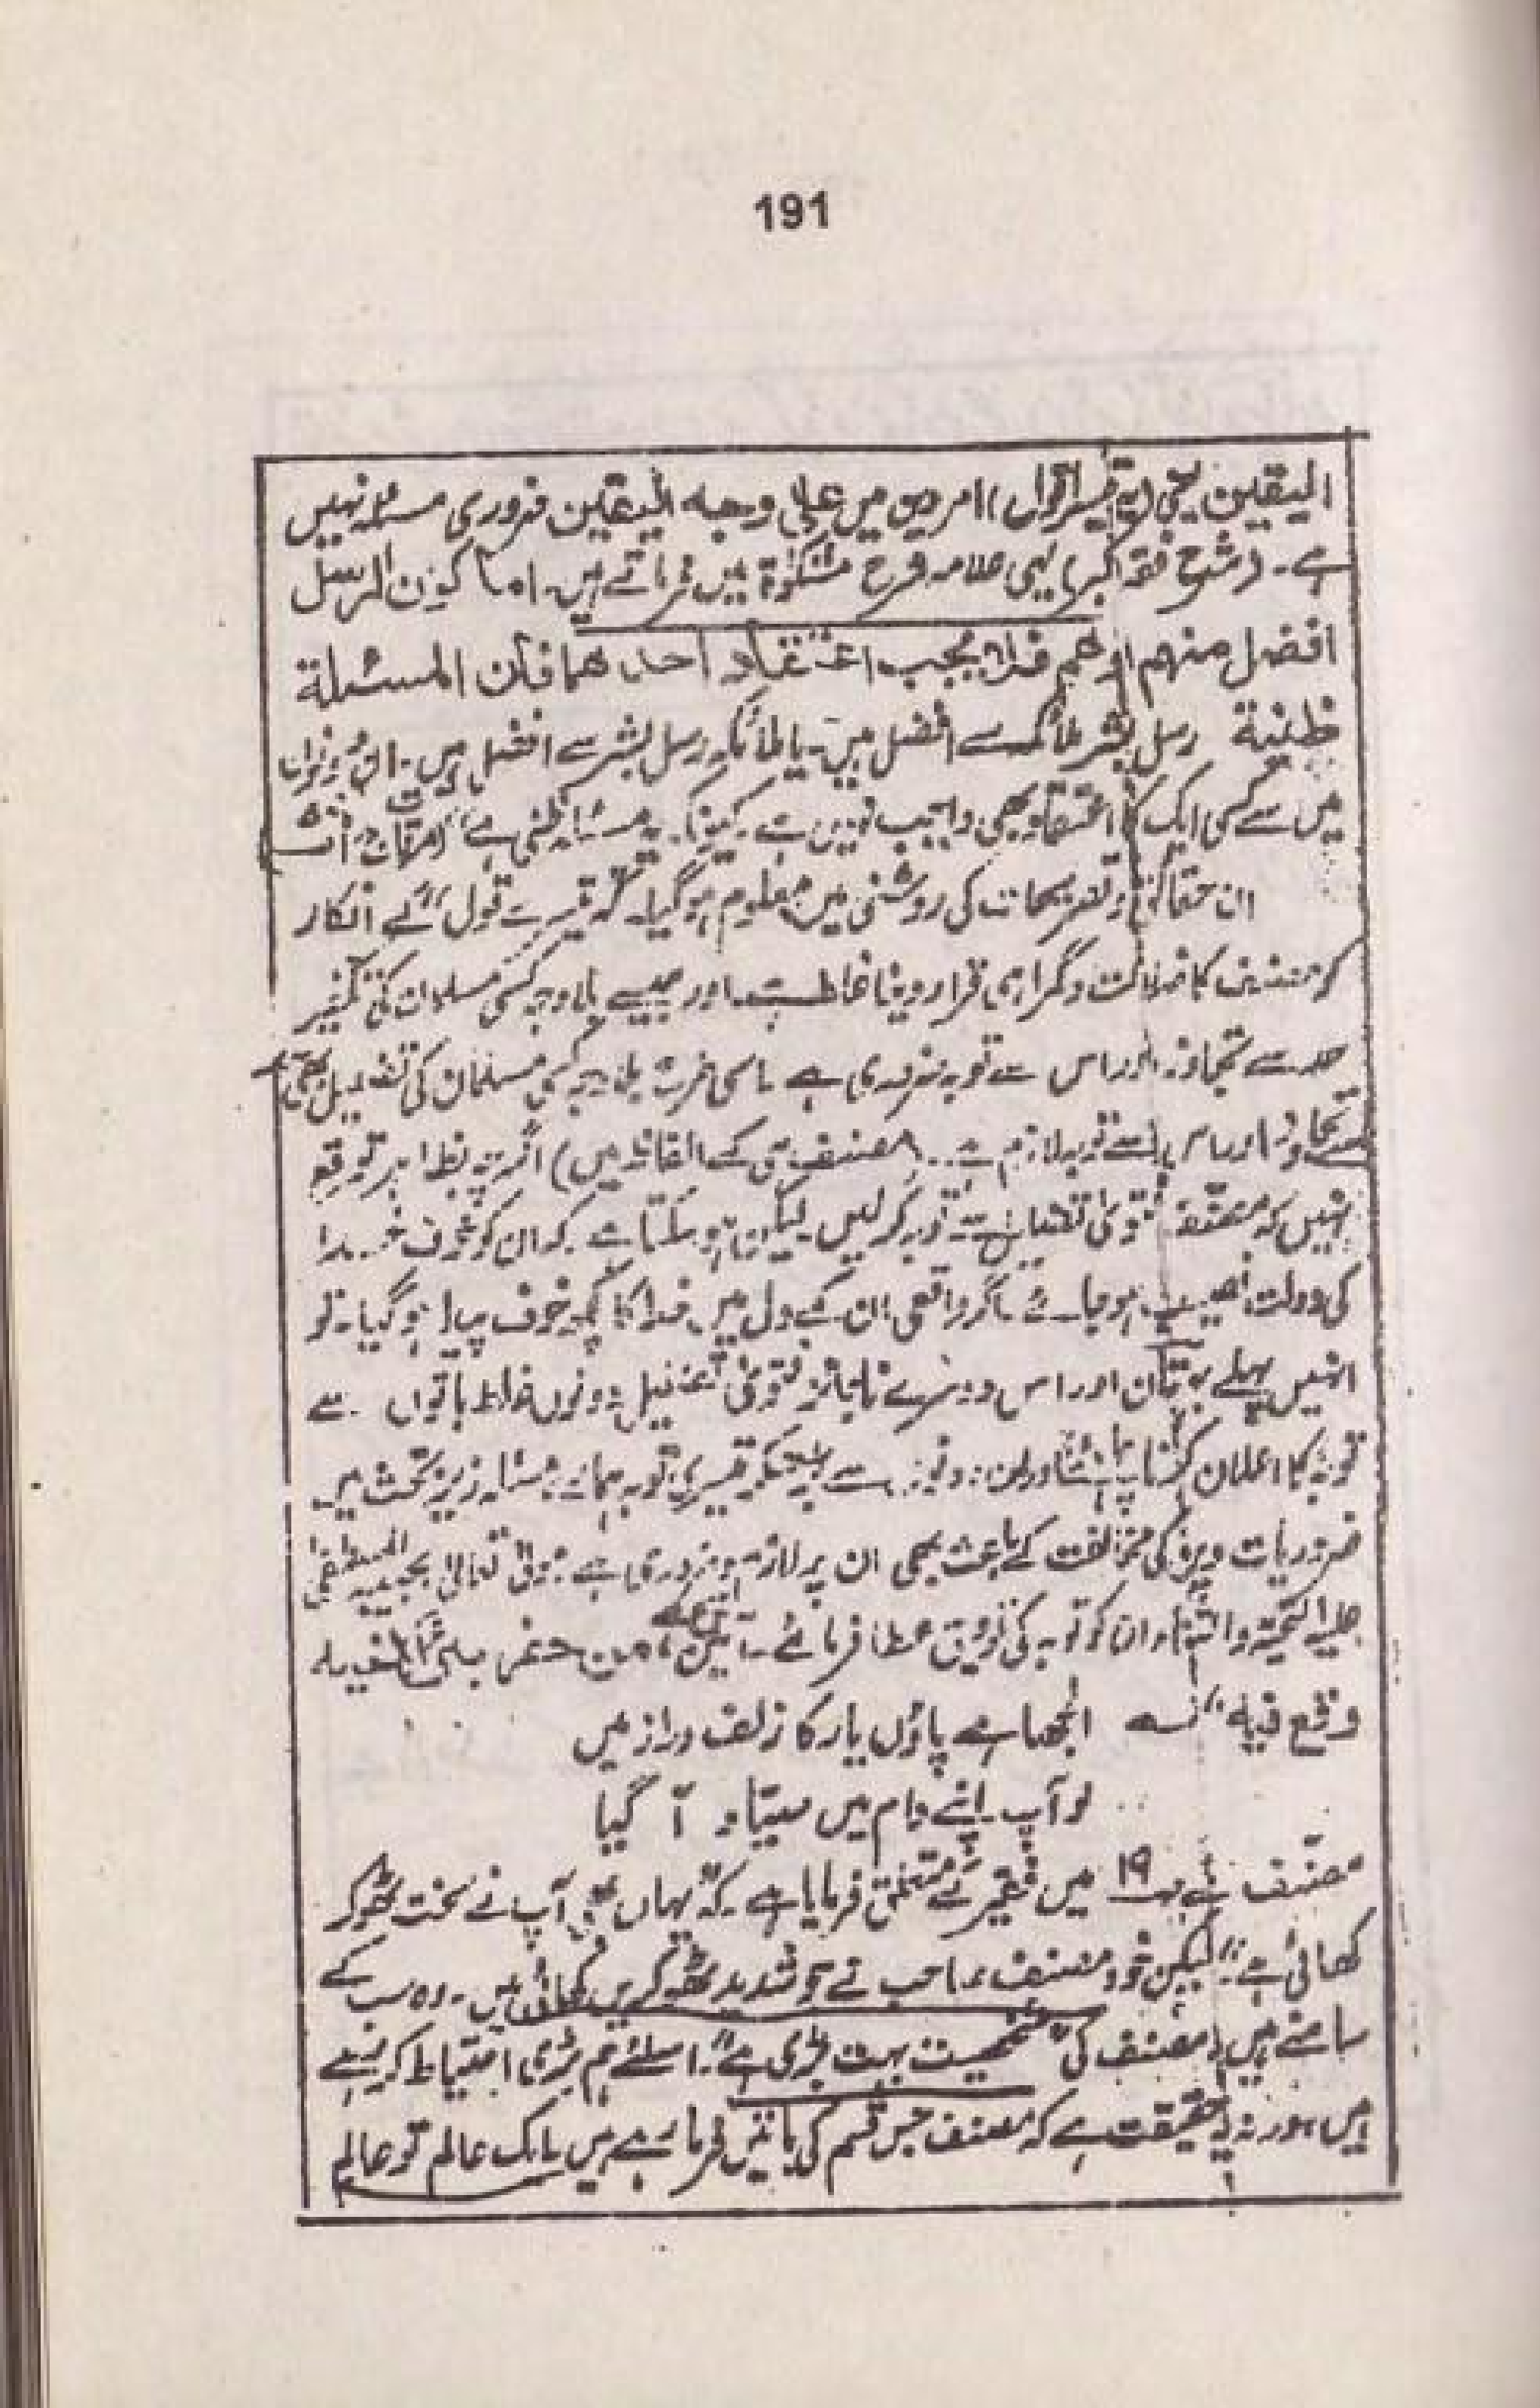 191
الیقین یعنی (یہ تیسرا قول) امر دین میں علی وجہ الیقین ضروری مسئلہ نہیں
ہے۔ (شرح فقہ اکبر) یہی علامہ شرح مشکوٰۃ میں فرماتے ہیں۔ اما کون الرسل
افضل منہم او ہم فلا یجب اعتقاد احدھما فان المسئلة
ظنیة رسل بشر ملائکہ سے افضل ہیں۔ یا ملائکہ رسل بشر سے افضل ہیں۔ ان دونوں
میں سے کسی ایک کا اعتقاد بھی واجب نہیں ہے۔ کیونکہ یہ مسئلہ ظنی ہے"
ان حقائق و تصریحات کی روشنی میں معلوم ہو گیا۔ کہ تیسرے قول" کے انکار
کو مصنف کا ضلالت و گمراہی قرار دینا غلط ہے۔ اور جیسے بلا وجہ کسی مسلمان کی تکفیر
حد سے تجاوز اور اس سے توبہ ضروری ہے۔ اسی طرح بلا وجہ کسی مسلمان کی تضلیل بھی
تجاوز اور اس سے توبہ لازم ہے۔ (مصنف ہی کے الفاظ میں) اگرچہ بظاہر توقع
نہیں کہ مصنف فتوٰی تضلیل سے توبہ کر لیں۔ لیکن ہو سکتا ہے۔ کہ ان کو خوف خدا
کی دولت نصیب ہو جائے۔ اگر واقعی ان کے دل میں خدا کا کچھ خوف پیدا ہو گیا۔ تو
انہیں پہلے بہتان اور اس دوسرے ناجائز فتوٰی تضلیل دونوں غلط باتوں سے
توبہ کا اعلان کرنا چاہئے اور ان دونوں سے بڑھ کر تیسری توبہ ہمارے مسئلہ زیر بحث میں
ضروریات دین کی مخالفت کے باعث بھی ان پر لازم و ضروری ہے۔ مولٰی تعالٰی بحبیبہ المصطفیٰ
علیہ التحیۃ والثناء ان کو توبہ کی توفیق عطا فرمائے۔ آمین من حفر بئرا لاخیہ
وقع فیہ" الجھا ہے پاؤں یار کا زلف دراز میں
لو آپ اپنے دام میں صیاد آ گیا
مصنف نے صہ ۱۹ میں فقیر کے متعلق فرمایا ہے۔ کہ "یہاں آپ نے سخت ٹھوکر
کھائی ہے"۔ لیکن خود مصنف صاحب نے جو شدید ٹھوکریں کھائی ہیں۔ وہ سب کے
سامنے ہیں۔ مصنف کی "شخصیت بہت بڑی ہے"۔ اسلئے ہم بڑی احتیاط کر رہے
ہیں۔ ورنہ حقیقت ہے کہ مصنف جس قسم کی باتیں فرما رہے ہیں۔ ایک عالم تو عالم